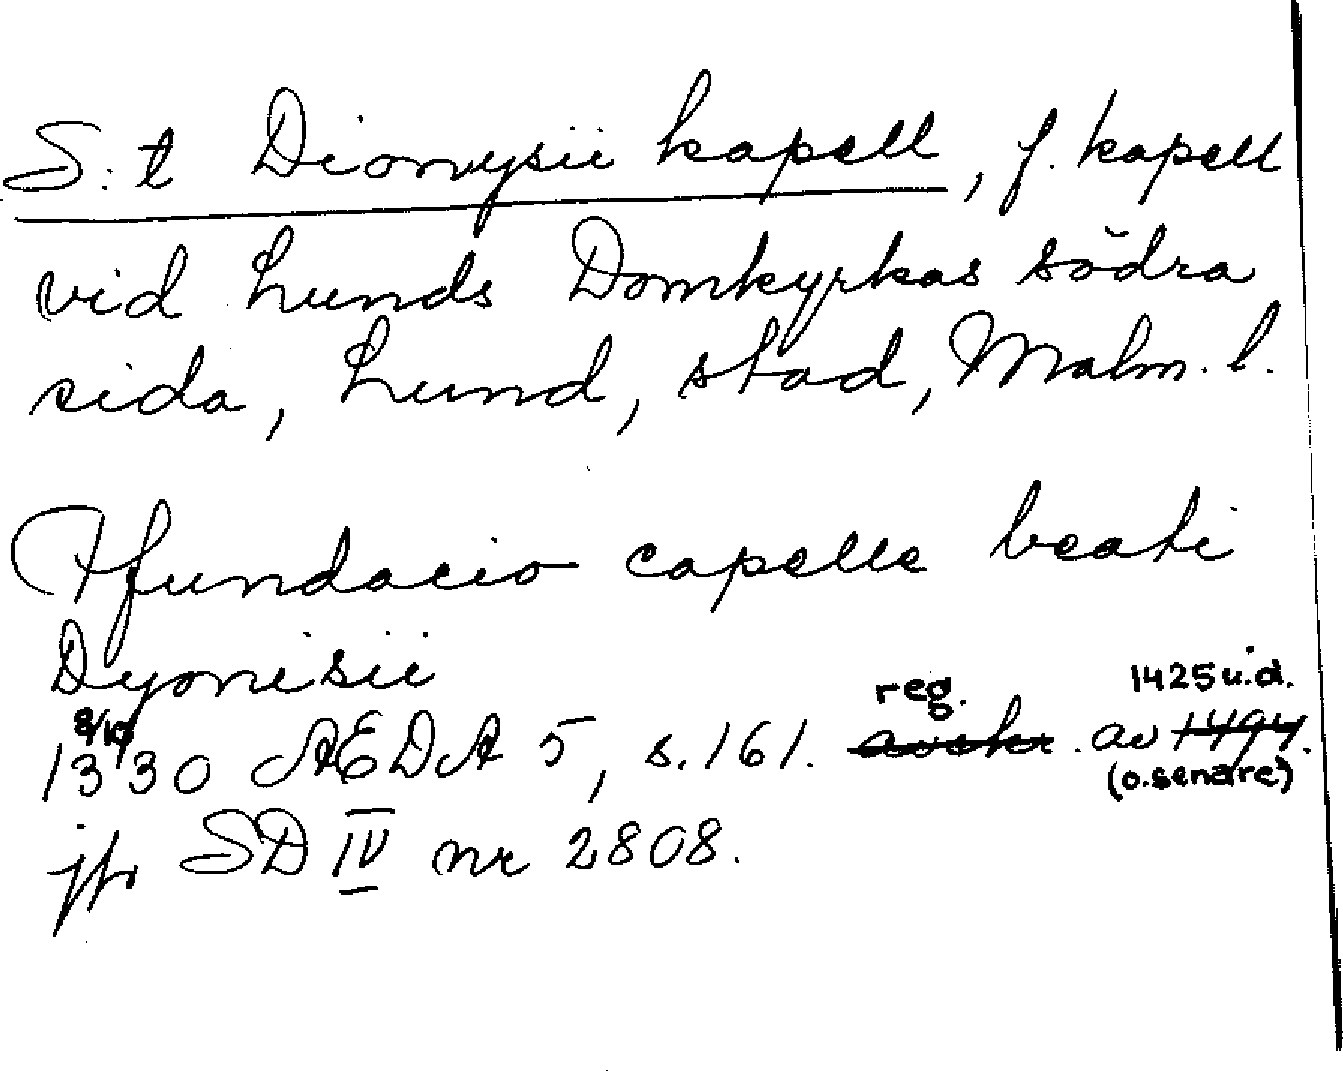 S:t Dionysii kapell, f. kapell
vid Lunds Domkyrkas södra
sida, Lund, stad, Malm. l.
Ffundacio capelle beati
Dyonisii
8/10 reg. 1425 u.d.
1330 AEDA 5, s. 161. avskr. av 1494.
(o. senare)
jfr SD IV nr 2808.